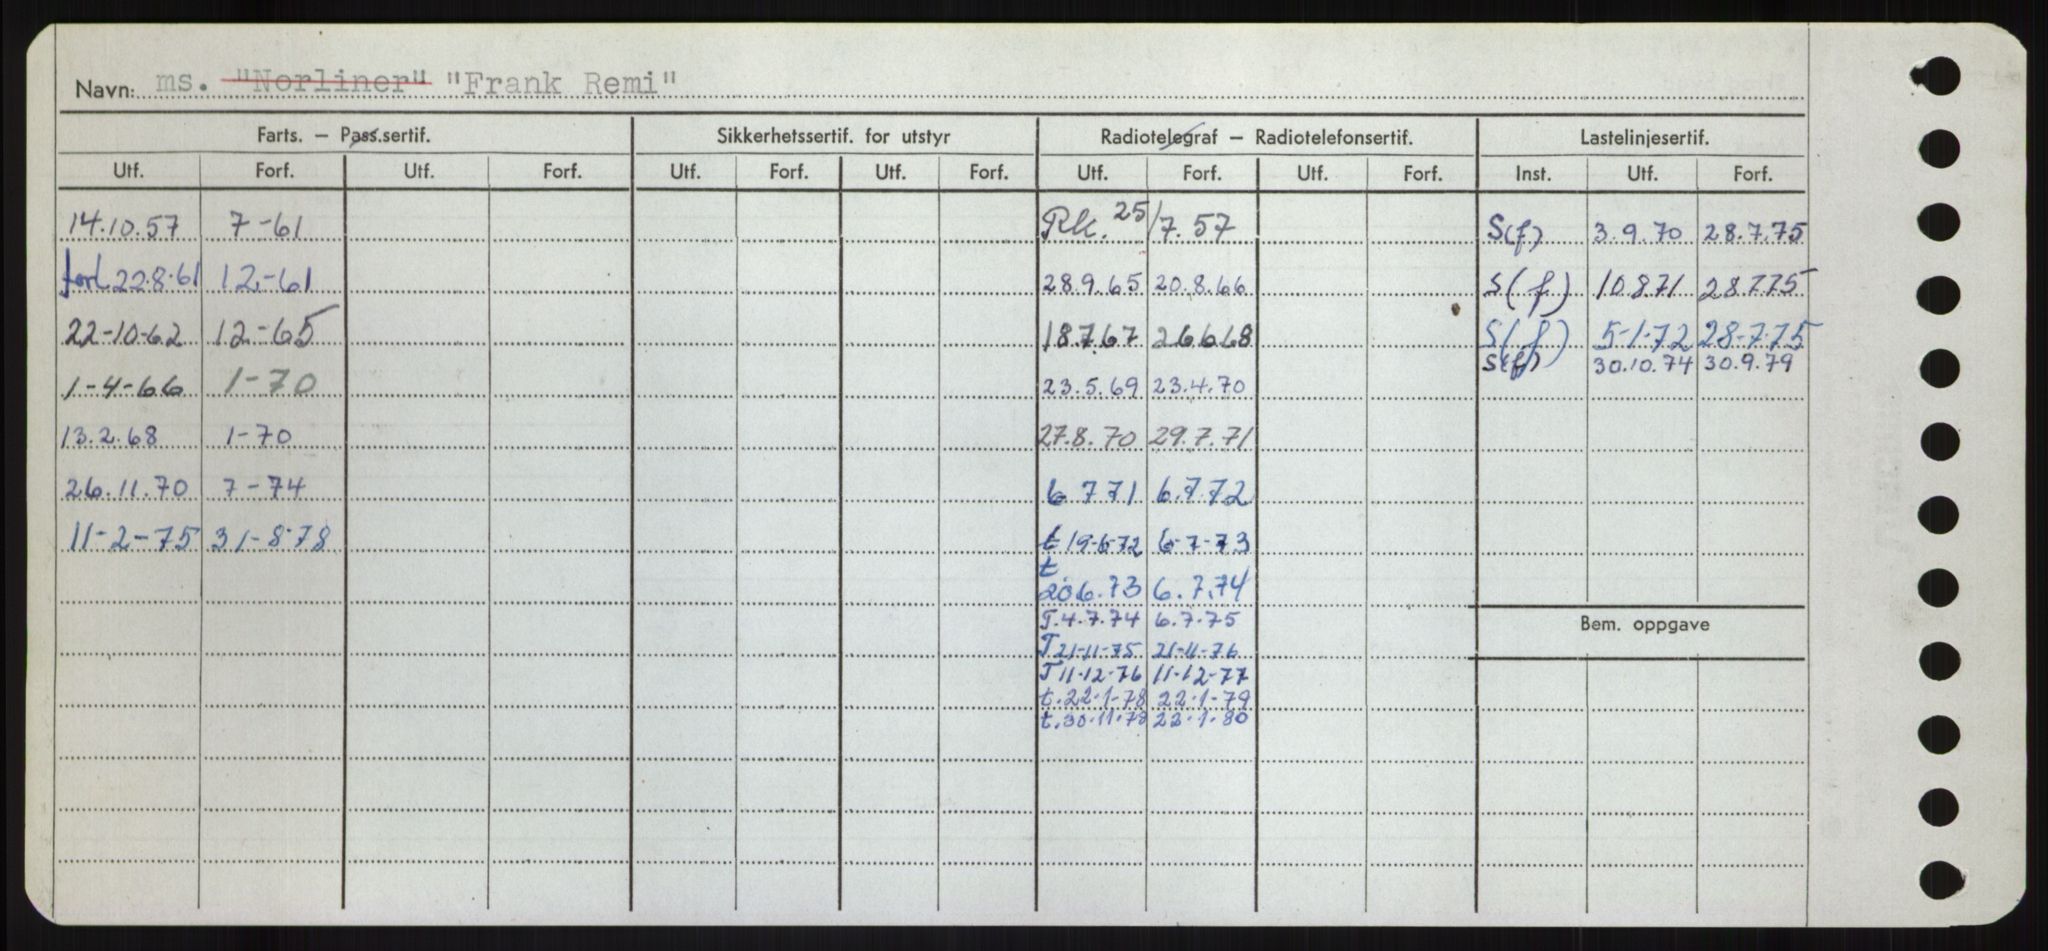 Navn: ms. "Norliner" "Frank Remi"
Farts. – Pass.sertif. Sikkerhetssertif. for utstyr Radiotelegraf – Radiotelefonsertif. Lastelinjesertif.
Utf. Forf. Utf. Forf. Utf. Forf. Utf. Forf. Utf. Forf. Utf. Forf. Inst. Utf. Forf.
14.10.57 7-61 Rk. 25/7.57 S(f) 3.9.70 28.7.75
forl 22.8.61 12-61 28.9.65 20.8.66 S(f) 10871 28775
22-10-62 12-65 18.7.67 26668 S(f) 5-1-72 28-7-75
S(f) 30.10.74 30.9.79
1-4-66 1-70 23.5.69 23.4.70
13.2.68 1-70 27.8.70 29.7.71
26.11.70 7-74 6 7 71 6.7.72
11-2-75 31-8-78 t 19-6-72 6-7-73
t 20.6.73 6.7.74
T.4.7.74 6.7.75
Bem. oppgave
T 21-11-75 21-11-76
T 11-12-76 11-12-77
t.22-1-78 22-1-79
t.30-11-78 22.1.80